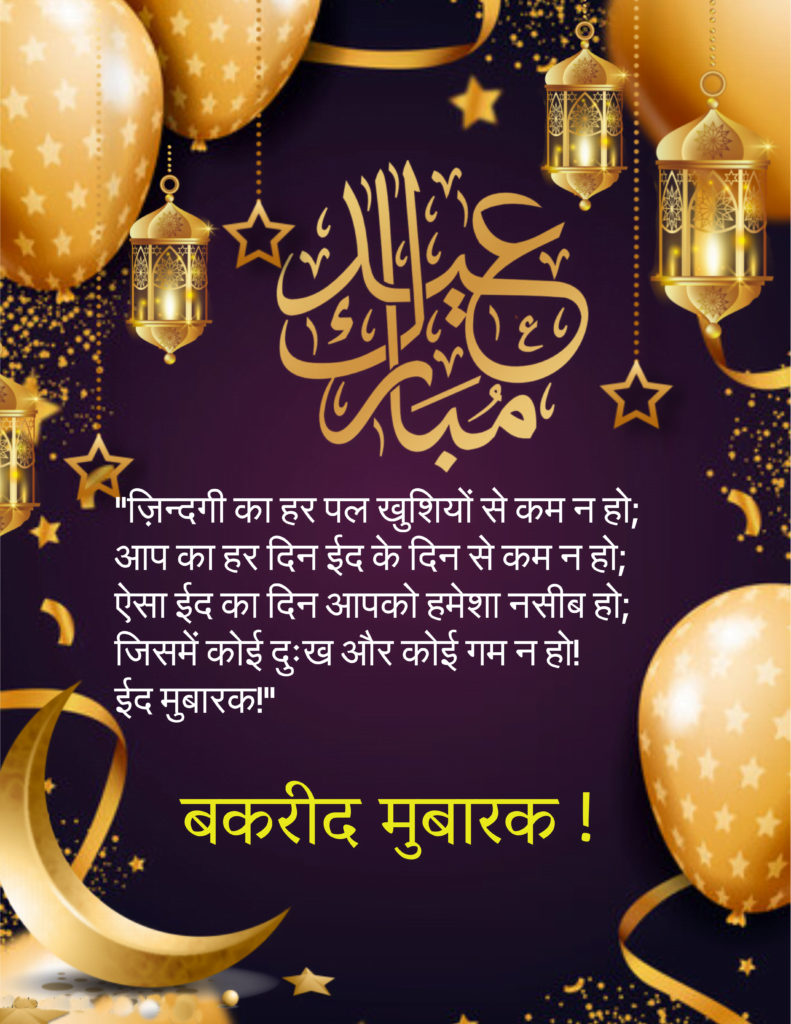 عيد
مُبَارك
"ज़िन्दगी का हर पल खुशियों से कम न हो;
आप का हर दिन ईद के दिन से कम न हो;
ऐसा ईद का दिन आपको हमेशा नसीब हो;
जिसमें कोई दुःख और कोई गम न हो!
ईद मुबारक!"
बकरीद मुबारक !